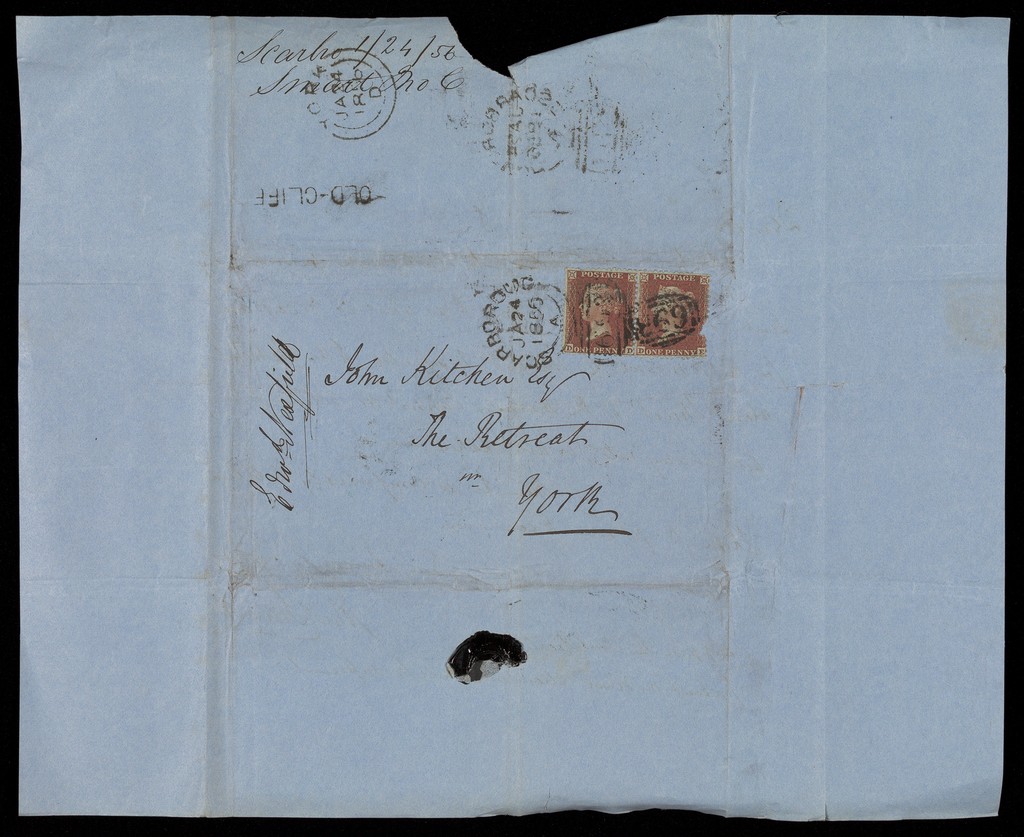 Scarbro 1/24/56
Smart Jno C
YORK
JA 24
1856
D
OLD-CLIFF
SCARBOROUGH
JA 24
1856
A
POSTAGE
ONE PENNY
POSTAGE
ONE PENNY
692
John Kitchen Esq
The Retreat
nr
York